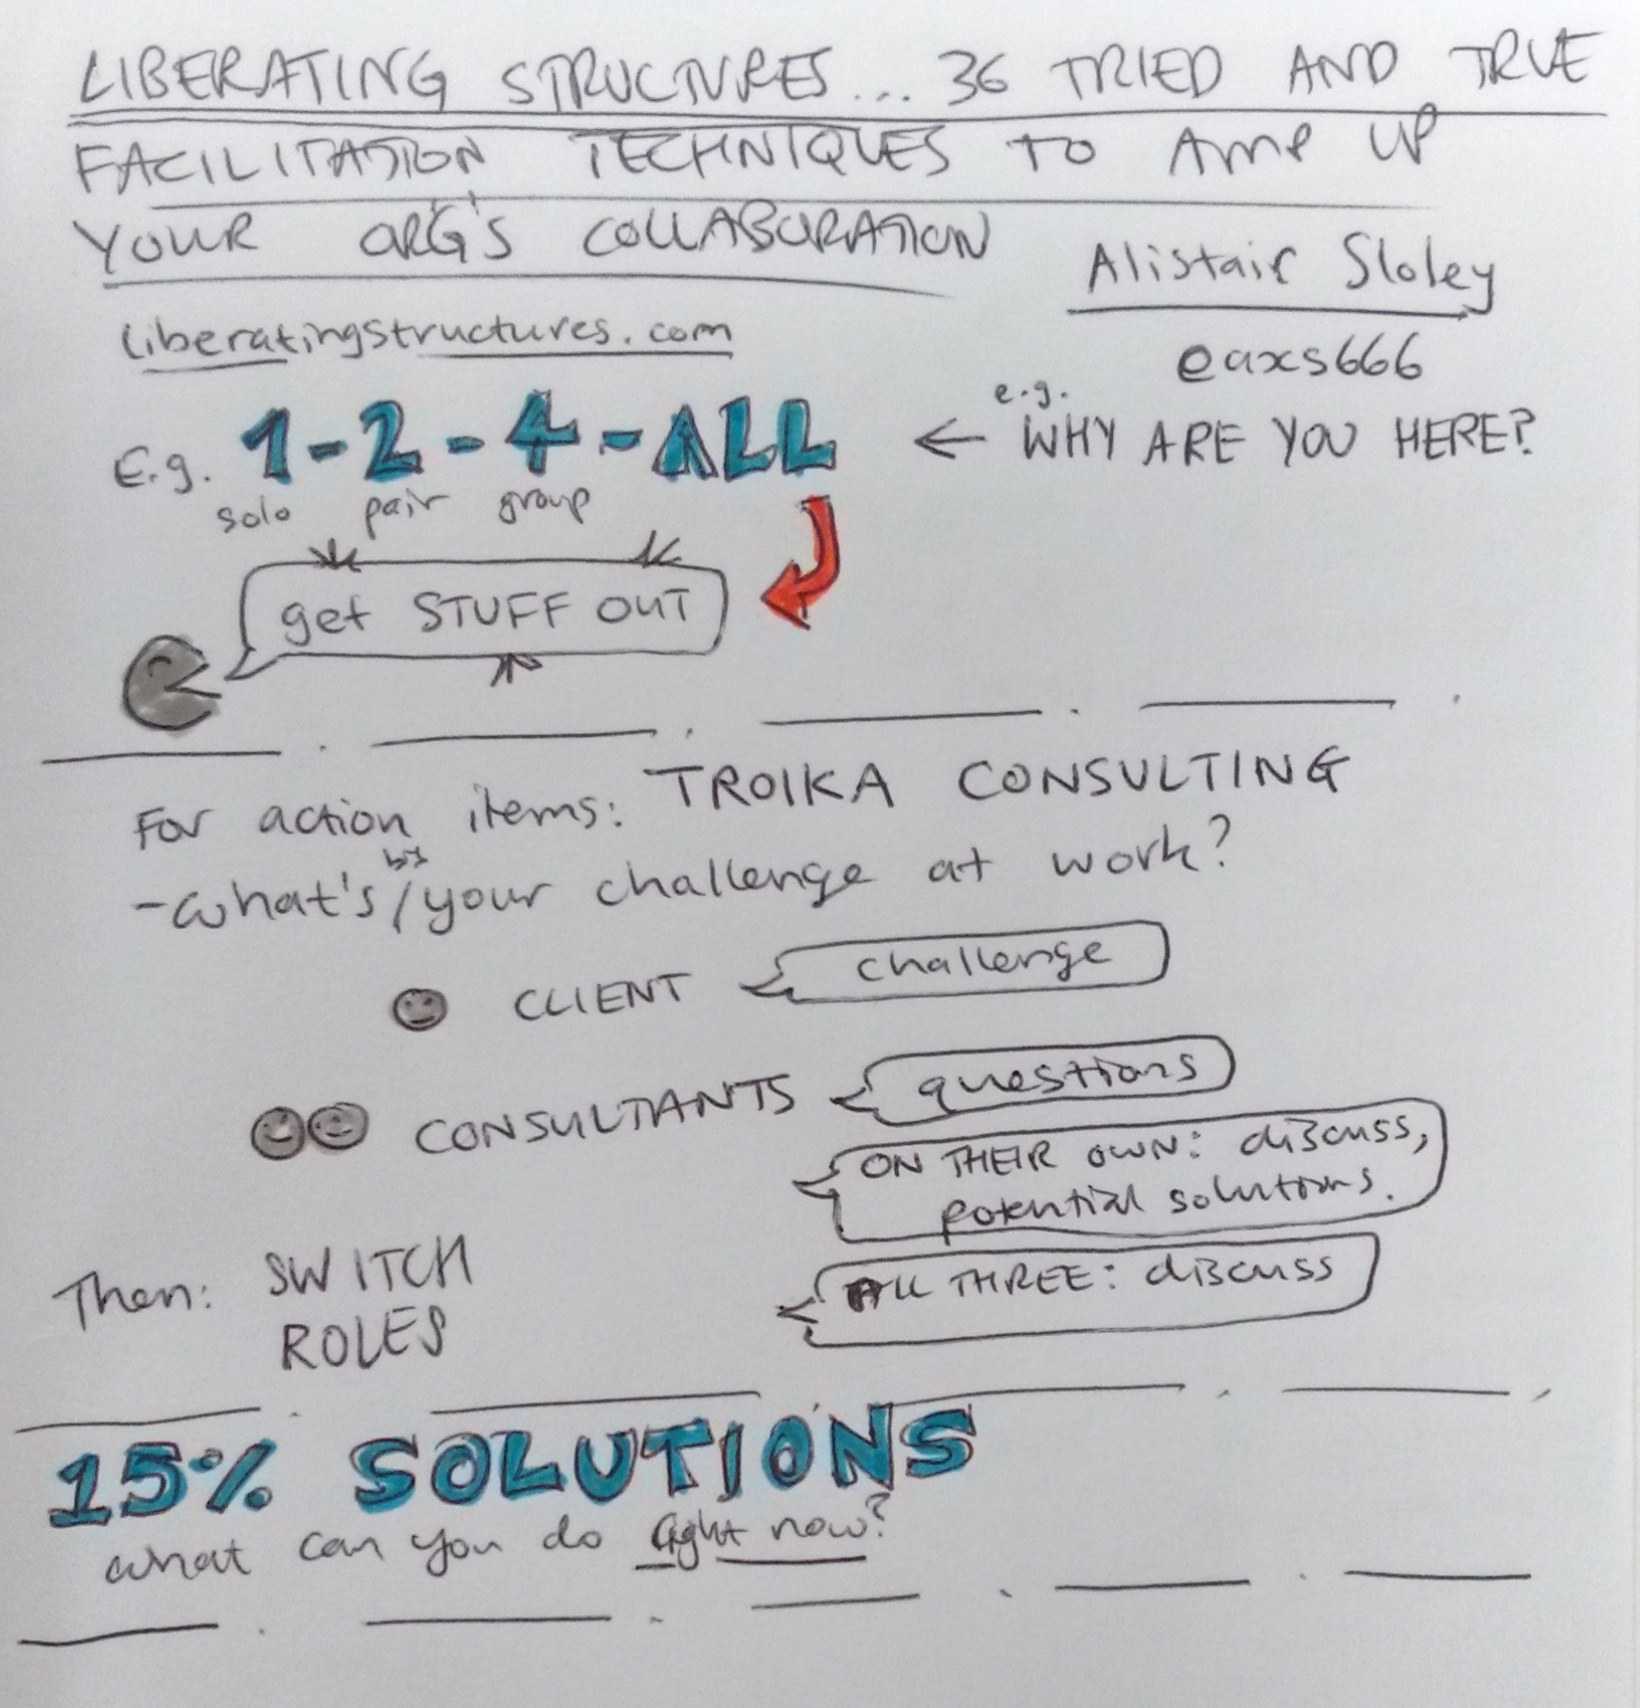 LIBERATING STRUCTURES... 36 TRIED AND TRUE
FACILITATION TECHNIQUES TO AMP UP
YOUR ORG'S COLLABORATION
Alistair Sloley
@axs666
liberatingstructures.com
E.g. 1-2-4-ALL
solo pair group
← e.g. WHY ARE YOU HERE?
get STUFF OUT
For action items: TROIKA CONSULTING
- what's / your challenge at work?
CLIENT
challenge
CONSULTANTS
questions
ON THEIR OWN: discuss,
potential solutions.
ALL THREE: discuss
Then: SWITCH
ROLES
15% SOLUTIONS
what can you do right now?